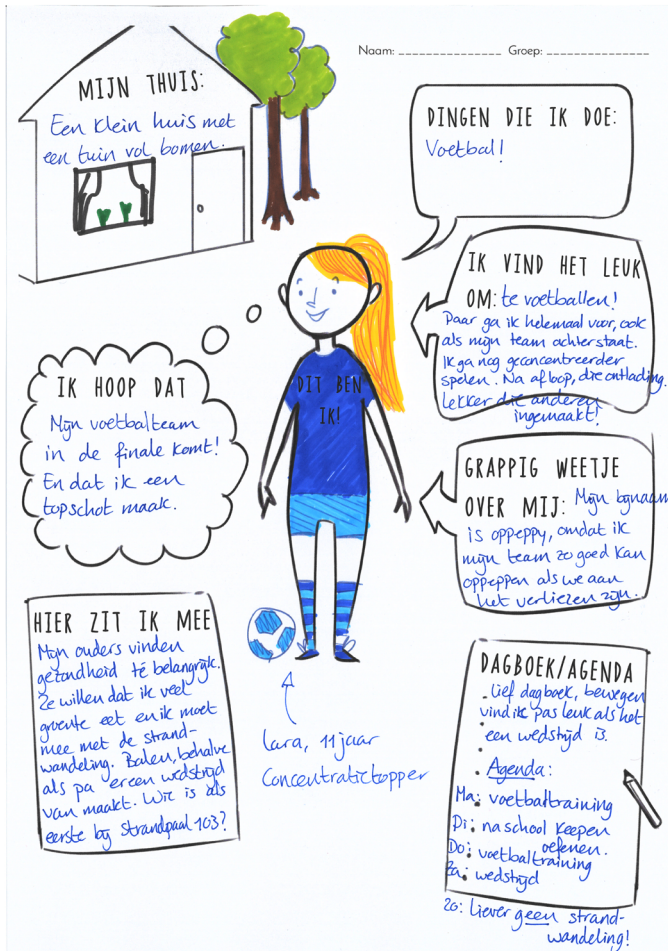 Naam: ________________ Groep: ________________
MIJN THUIS:
Een klein huis met
een tuin vol bomen.
DINGEN DIE IK DOE:
Voetbal!
IK VIND HET LEUK
OM: te voetballen!
Daar ga ik helemaal voor, ook
als mijn team achterstaat.
Ik ga nog geconcentreerder
spelen. Na afloop, die ontlading.
Lekker die anderen
ingemaakt!
IK HOOP DAT
Mijn voetbalteam
in de finale komt!
En dat ik een
topschot maak.
DIT BEN
IK!
GRAPPIG WEETJE
OVER MIJ: Mijn bijnaam
is oppeppy, omdat ik
mijn team zo goed kan
oppeppen als we aan
het verliezen zijn.
HIER ZIT IK MEE
Mijn ouders vinden
gezondheid té belangrijk.
Ze willen dat ik veel
groente eet en ik moet
mee met de strand-
wandeling. Balen, behalve
als pa er een wedstrijd
van maakt. Wie is als
eerste bij strandpaal 103?
Lara, 11 jaar
Concentratietopper
DAGBOEK/AGENDA
. Lief dagboek, bewegen
vind ik pas leuk als het
een wedstrijd is.
. Agenda:
Ma: voetbaltraining
Di: na school keepen
oefenen.
Do: voetbaltraining
Za: wedstrijd
Zo: Liever geen strand-
wandeling!